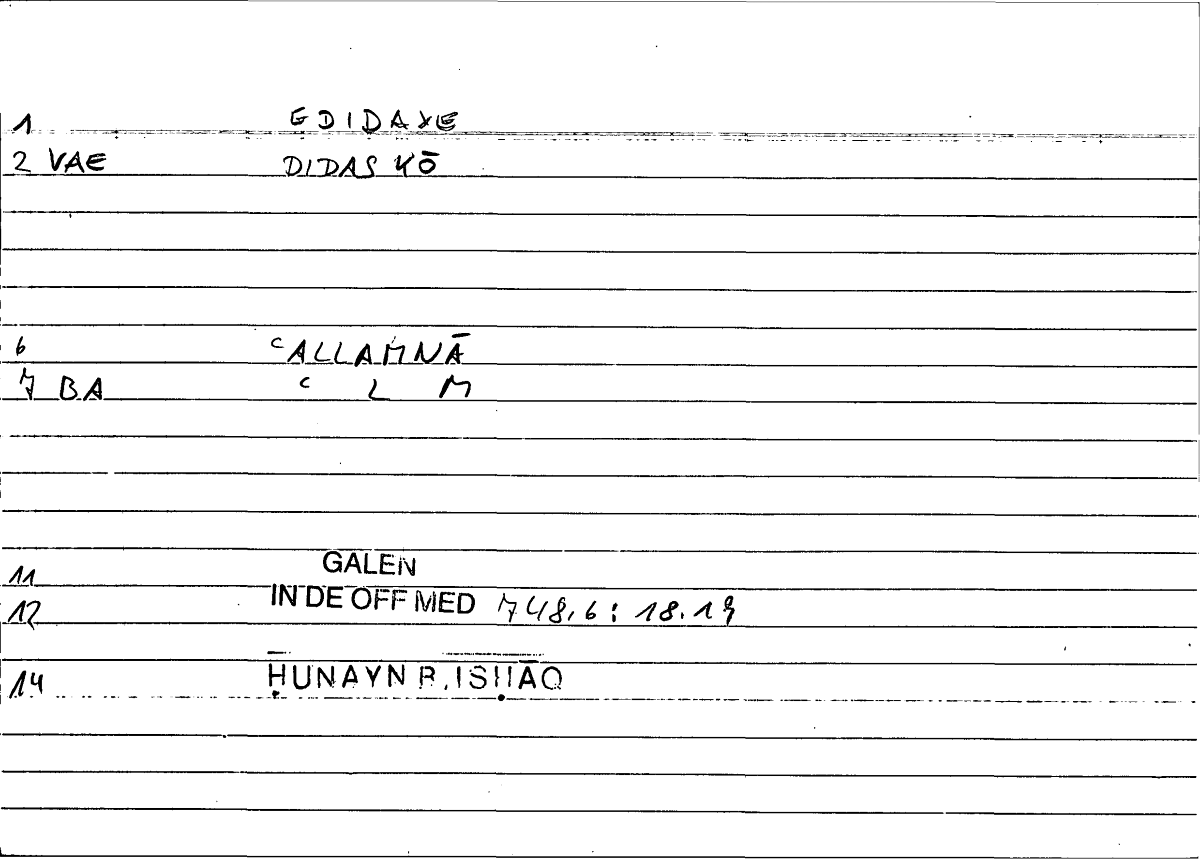 1 EDIDAXE
2 VAE DIDASKŌ
6 ᶜALLAMNĀ
7 BA ᶜ L M
11 GALEN
12 IN DE OFF MED 748,6 : 18.19
14 ḤUNAYN B. ISḤĀQ